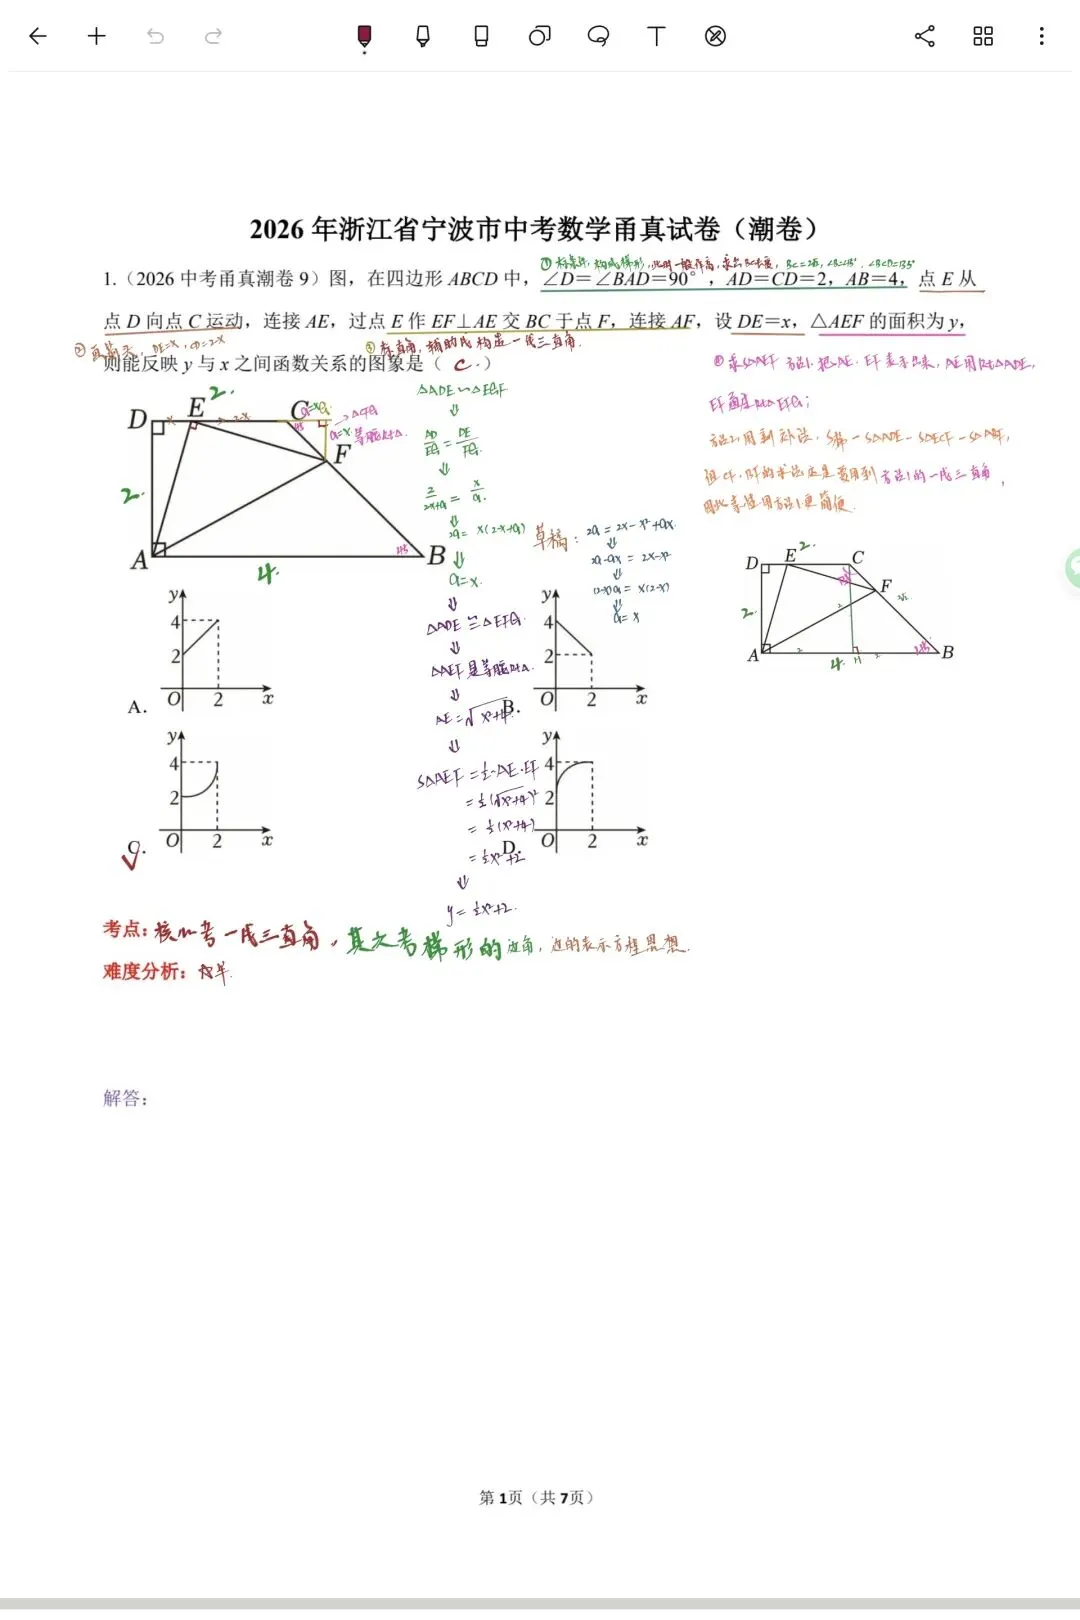 2026 年浙江省宁波市中考数学甬真试卷（潮卷）
① 标条件，构成梯形，此时一般作高，求出BC长度，BC=2√2，∠B=45°，∠BCD=135°
1.（2026 中考甬真潮卷 9）图，在四边形 ABCD 中，∠D＝∠BAD＝90°，AD＝CD＝2，AB＝4，点 E 从
点 D 向点 C 运动，连接 AE，过点 E 作 EF⊥AE 交 BC 于点 F，连接 AF，设 DE＝x，△AEF 的面积为 y，
② DE=x，CD=2-x
③ 标直角，辅助线构造一线三直角.
则能反映 y 与 x 之间函数关系的图象是（ C ）
④ 求S△AEF 方法1.把AE．EF表示出来，AE用Rt△ADE，
EF通过Rt△EFG；
方法2.用割补法．S梯－S△ADE－S△ECF－S△ABF，
但CF、BF的求法还是要用到方法1的一线三直角，
因此考虑用方法1更简便．
D E 2. C a=x G
x 2-x 45 → △CFG
a=x 等腰Rt△.
F
2.
A 4. 45 B
△ADE∽△EGF
⇓
AD/EG = DE/FG
⇓
2/2-x+a = x/a
⇓
2a= x(2-x+a)
⇓
a=x.
⇓
△ADE≌△EFG.
⇓
△AEF是等腰Rt△.
⇓
AE=√x²+4.
⇓
S△AEF=½·AE·EF
=½(√x²+4)²
=½(x²+4)
=½x²+2
⇓
y=½x²+2.
草稿：2a = 2x-x²+ax.
⇓
2a-ax = 2x-x²
⇓
(2-x)a = x(2-x)
⇓
a=x
D E 2. C
F
2. 2 2√2
A 2 4 H 2 45° B
y 4 2 O 2 x
A.
y 4 2 O 2 x
B.
y 4 2 O 2 x
C.
y 4 2 O 2 x
D.
考点：核心考一线三直角，其次考梯形的边角，边的表示方程思想.
难度分析：☆半.
解答：
第 1页（共 7页）